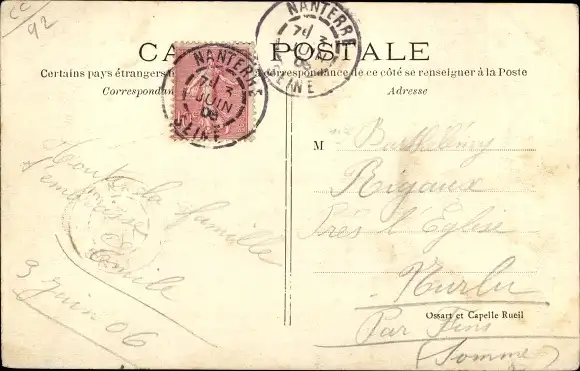 CC
92
CARTE POSTALE
Certains pays étrangers Correspondance de ce côté se renseigner à la Poste
Correspondan
Adresse
NANTERRE
3
JUIN
06
SEINE
NANTERRE
3
06
SEINE
Toute la famille
t'embrasse
Emile
3 Juin 06
M me Barthélémy
Rigaux
Près l'Eglise
Nurlu
Par Fins
(Somme)
Ossart et Capelle Rueil